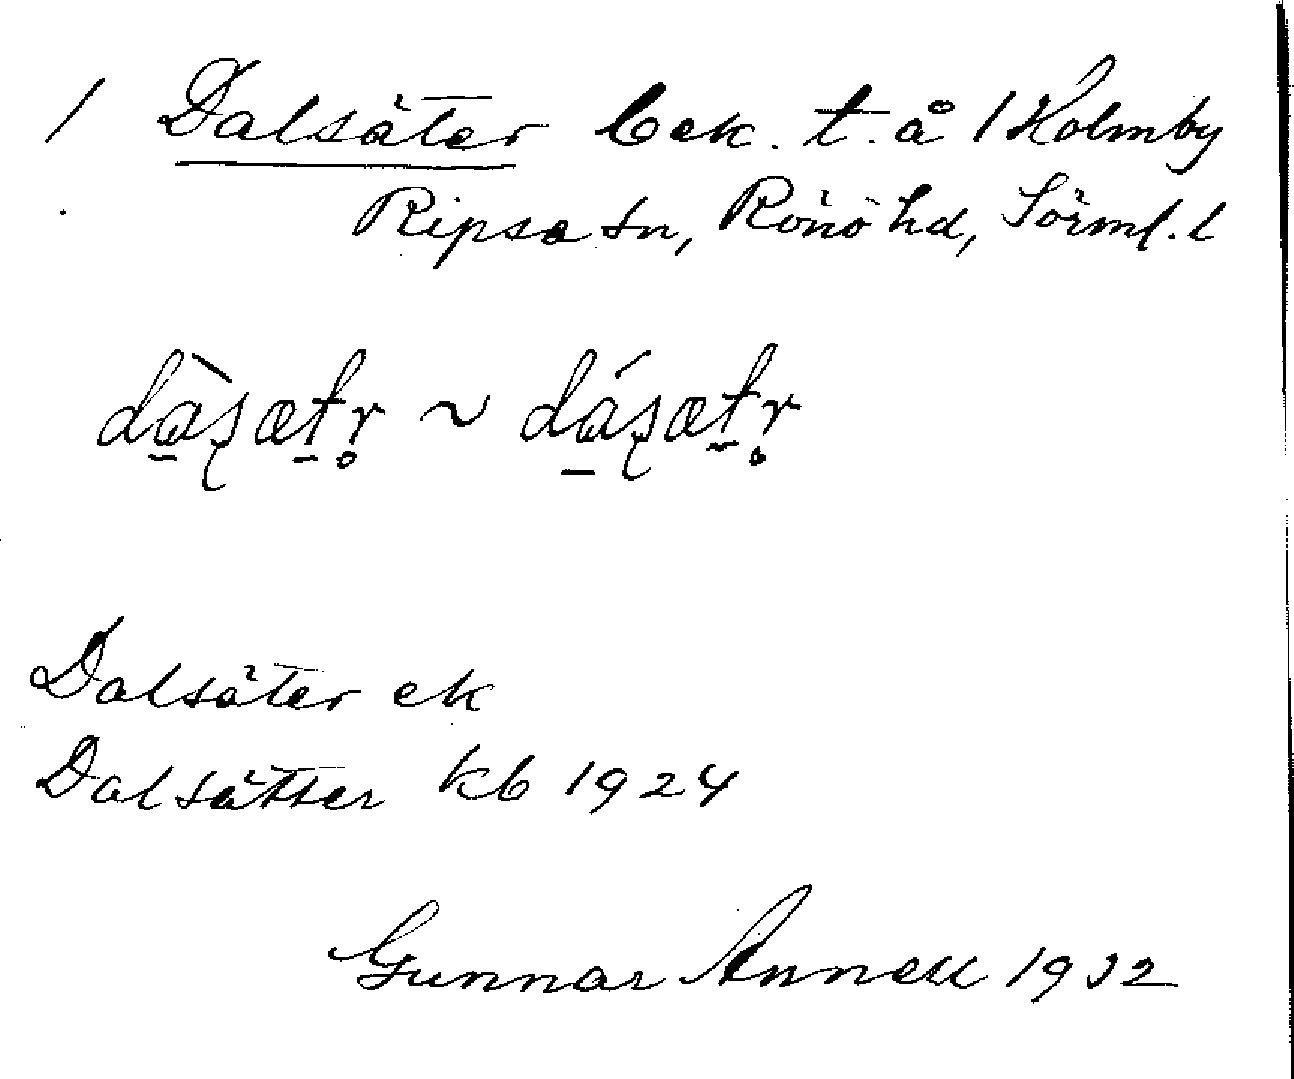 / Dalsäter bek. t. å /Holmby
Ripsa sn, Rönö hd, Sörml. l
dàʂætr̥ ~ dáʂætr̥
Dalsäter ek
Dalsätter kb 1924
Gunnar Annell 1932